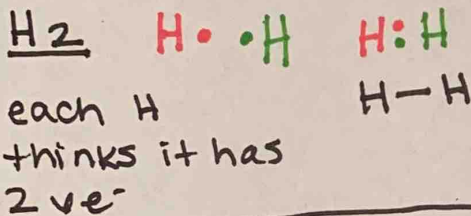 H2 H• •H H:H
H—H
each H
thinks it has
2 ve⁻